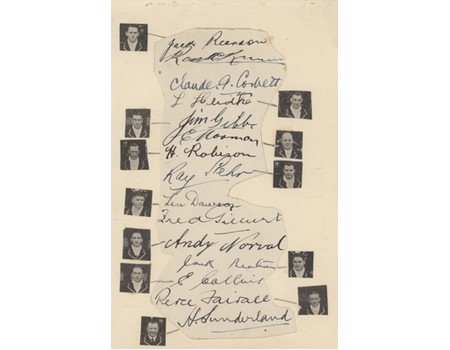 Jack Pearson
Claude A. Corbett
L Heidke
Jim Gibbs
E Norman
H. Robison
Ray Stehr
Len Dawson
Fred Gilbert
Andy Norval
Jack
E Collins
Perce Fairall
H. Sunderland